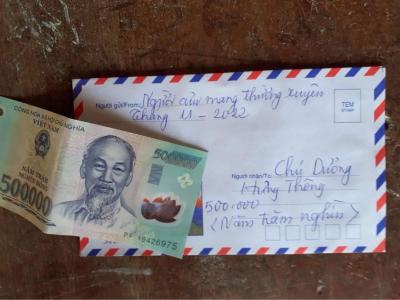 CỘNG HÒA XÃ HỘI CHỦ NGHĨA
VIỆT NAM
NĂM TRĂM
NGHÌN ĐỒNG
500000
500000
PS 19426975
Người gửi/From: Người cưu mang thường xuyên
tháng 11 - 2022
TEM
STAMP
Người nhận/To: Chú Dưỡng
Hưng Thông
500.000
<Năm trăm nghìn>